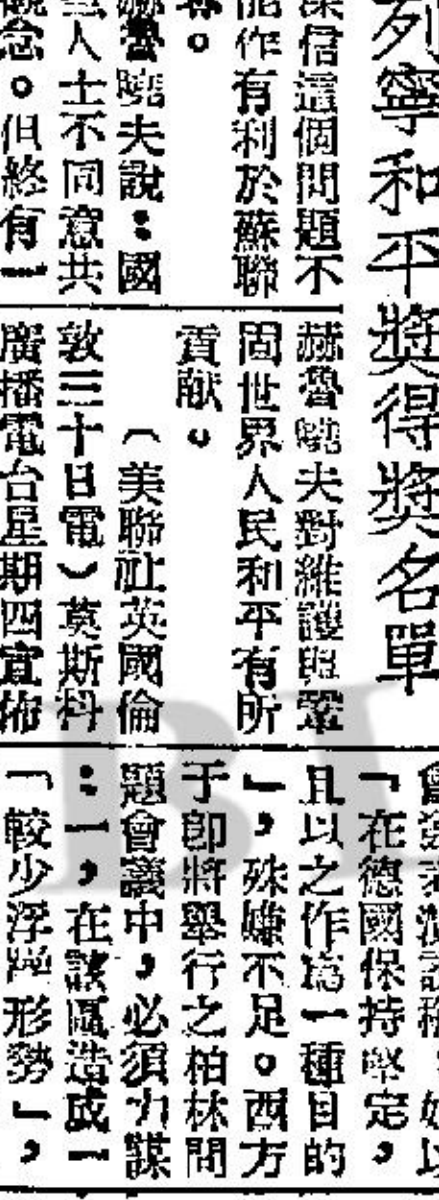 列寧和平獎得獎名單
深信這個問題不
能作有利於蘇聯
。
赫魯曉夫說：國
人士不同意共
觀念。但終有一
赫魯曉夫對維護與鞏
固世界人民和平有所
貢献。
（美聯社英國倫
敦三十日電）莫斯科
廣播電台星期四宣佈
「在德國保持堅定，
且以之作為一種目的
」，殊嫌不足。西方
于即將舉行之柏林問
題會議中，必須力謀
：一，在該區造成一
「較少浮躁形勢」，